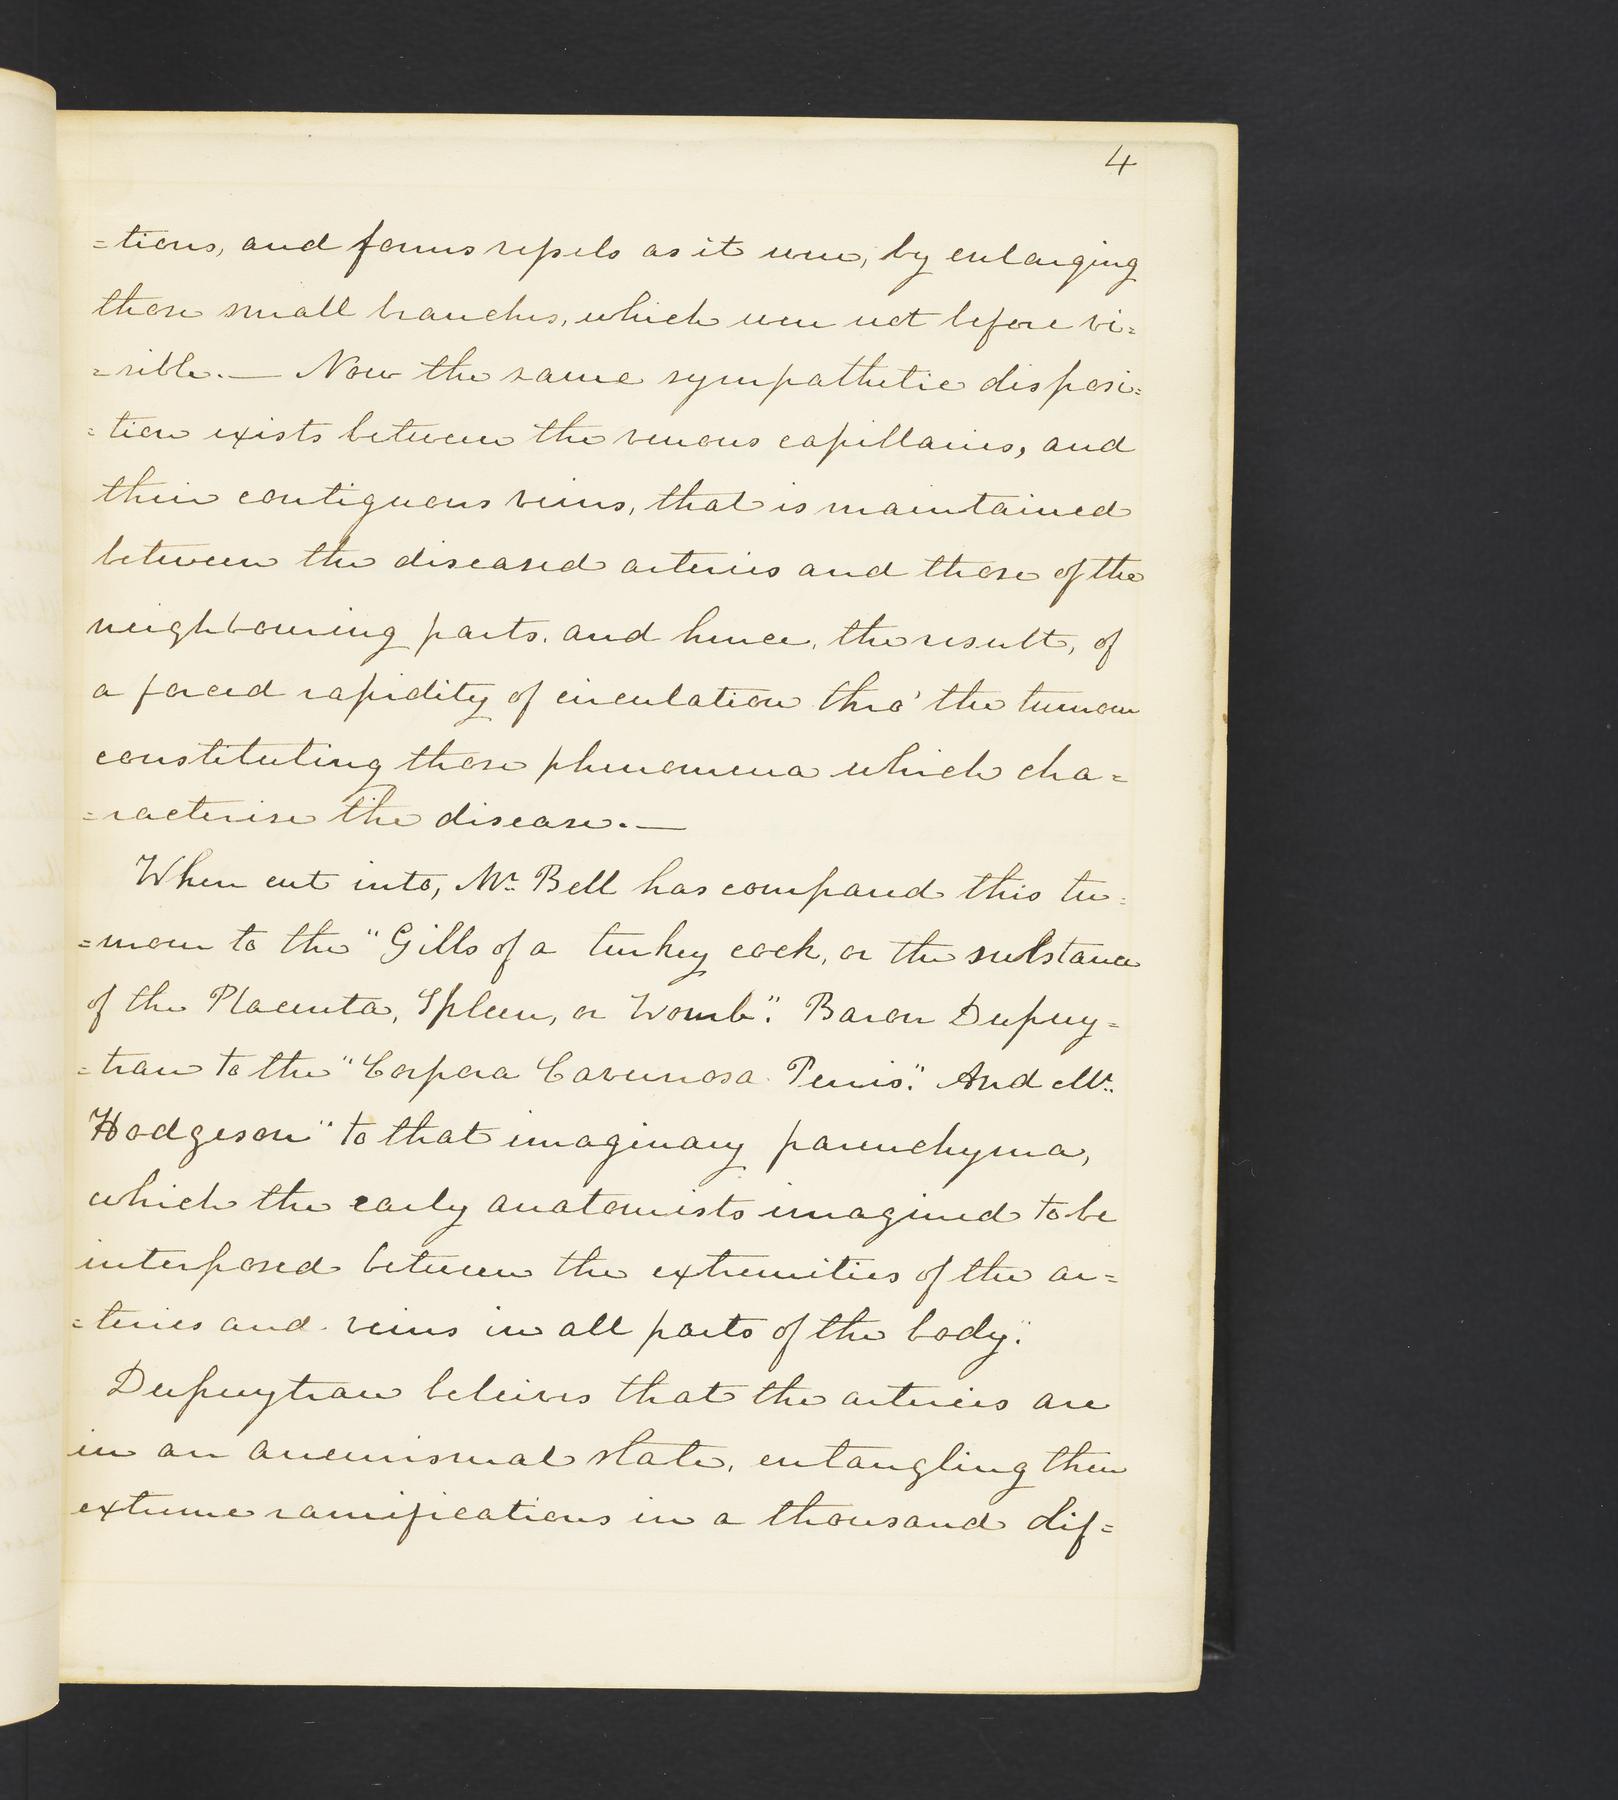 4
=tions, and forms vessels as it were, by enlarging
those small branches, which were not before vi=
=sible.— Now the same sympathetic disposi=
=tion exists between the venous capillaries, and
their contiguous veins, that is maintained
between the diseased arteries and those of the
neighbouring parts. and hence, the result, of
a forced rapidity of circulation thro' the tumour
constituting those phenomena which cha=
=racterise the disease.—
When cut into, Mr. Bell has compared this tu=
=mour to the "Gills of a turkey cock, or the substance
of the Placenta, Spleen, or Womb". Baron Dupuy=
=tran to the "Corpora Cavernosa Penis". And Mr.
Hodgeson "to that imaginary parenchyma,
which the early anatomists imagined to be
interposed between the extremities of the ar=
=teries and veins in all parts of the body".
Dupuytran beleives that the arteries are
in an aneurismal state, entangling their
extreme ramifications in a thousand dif=